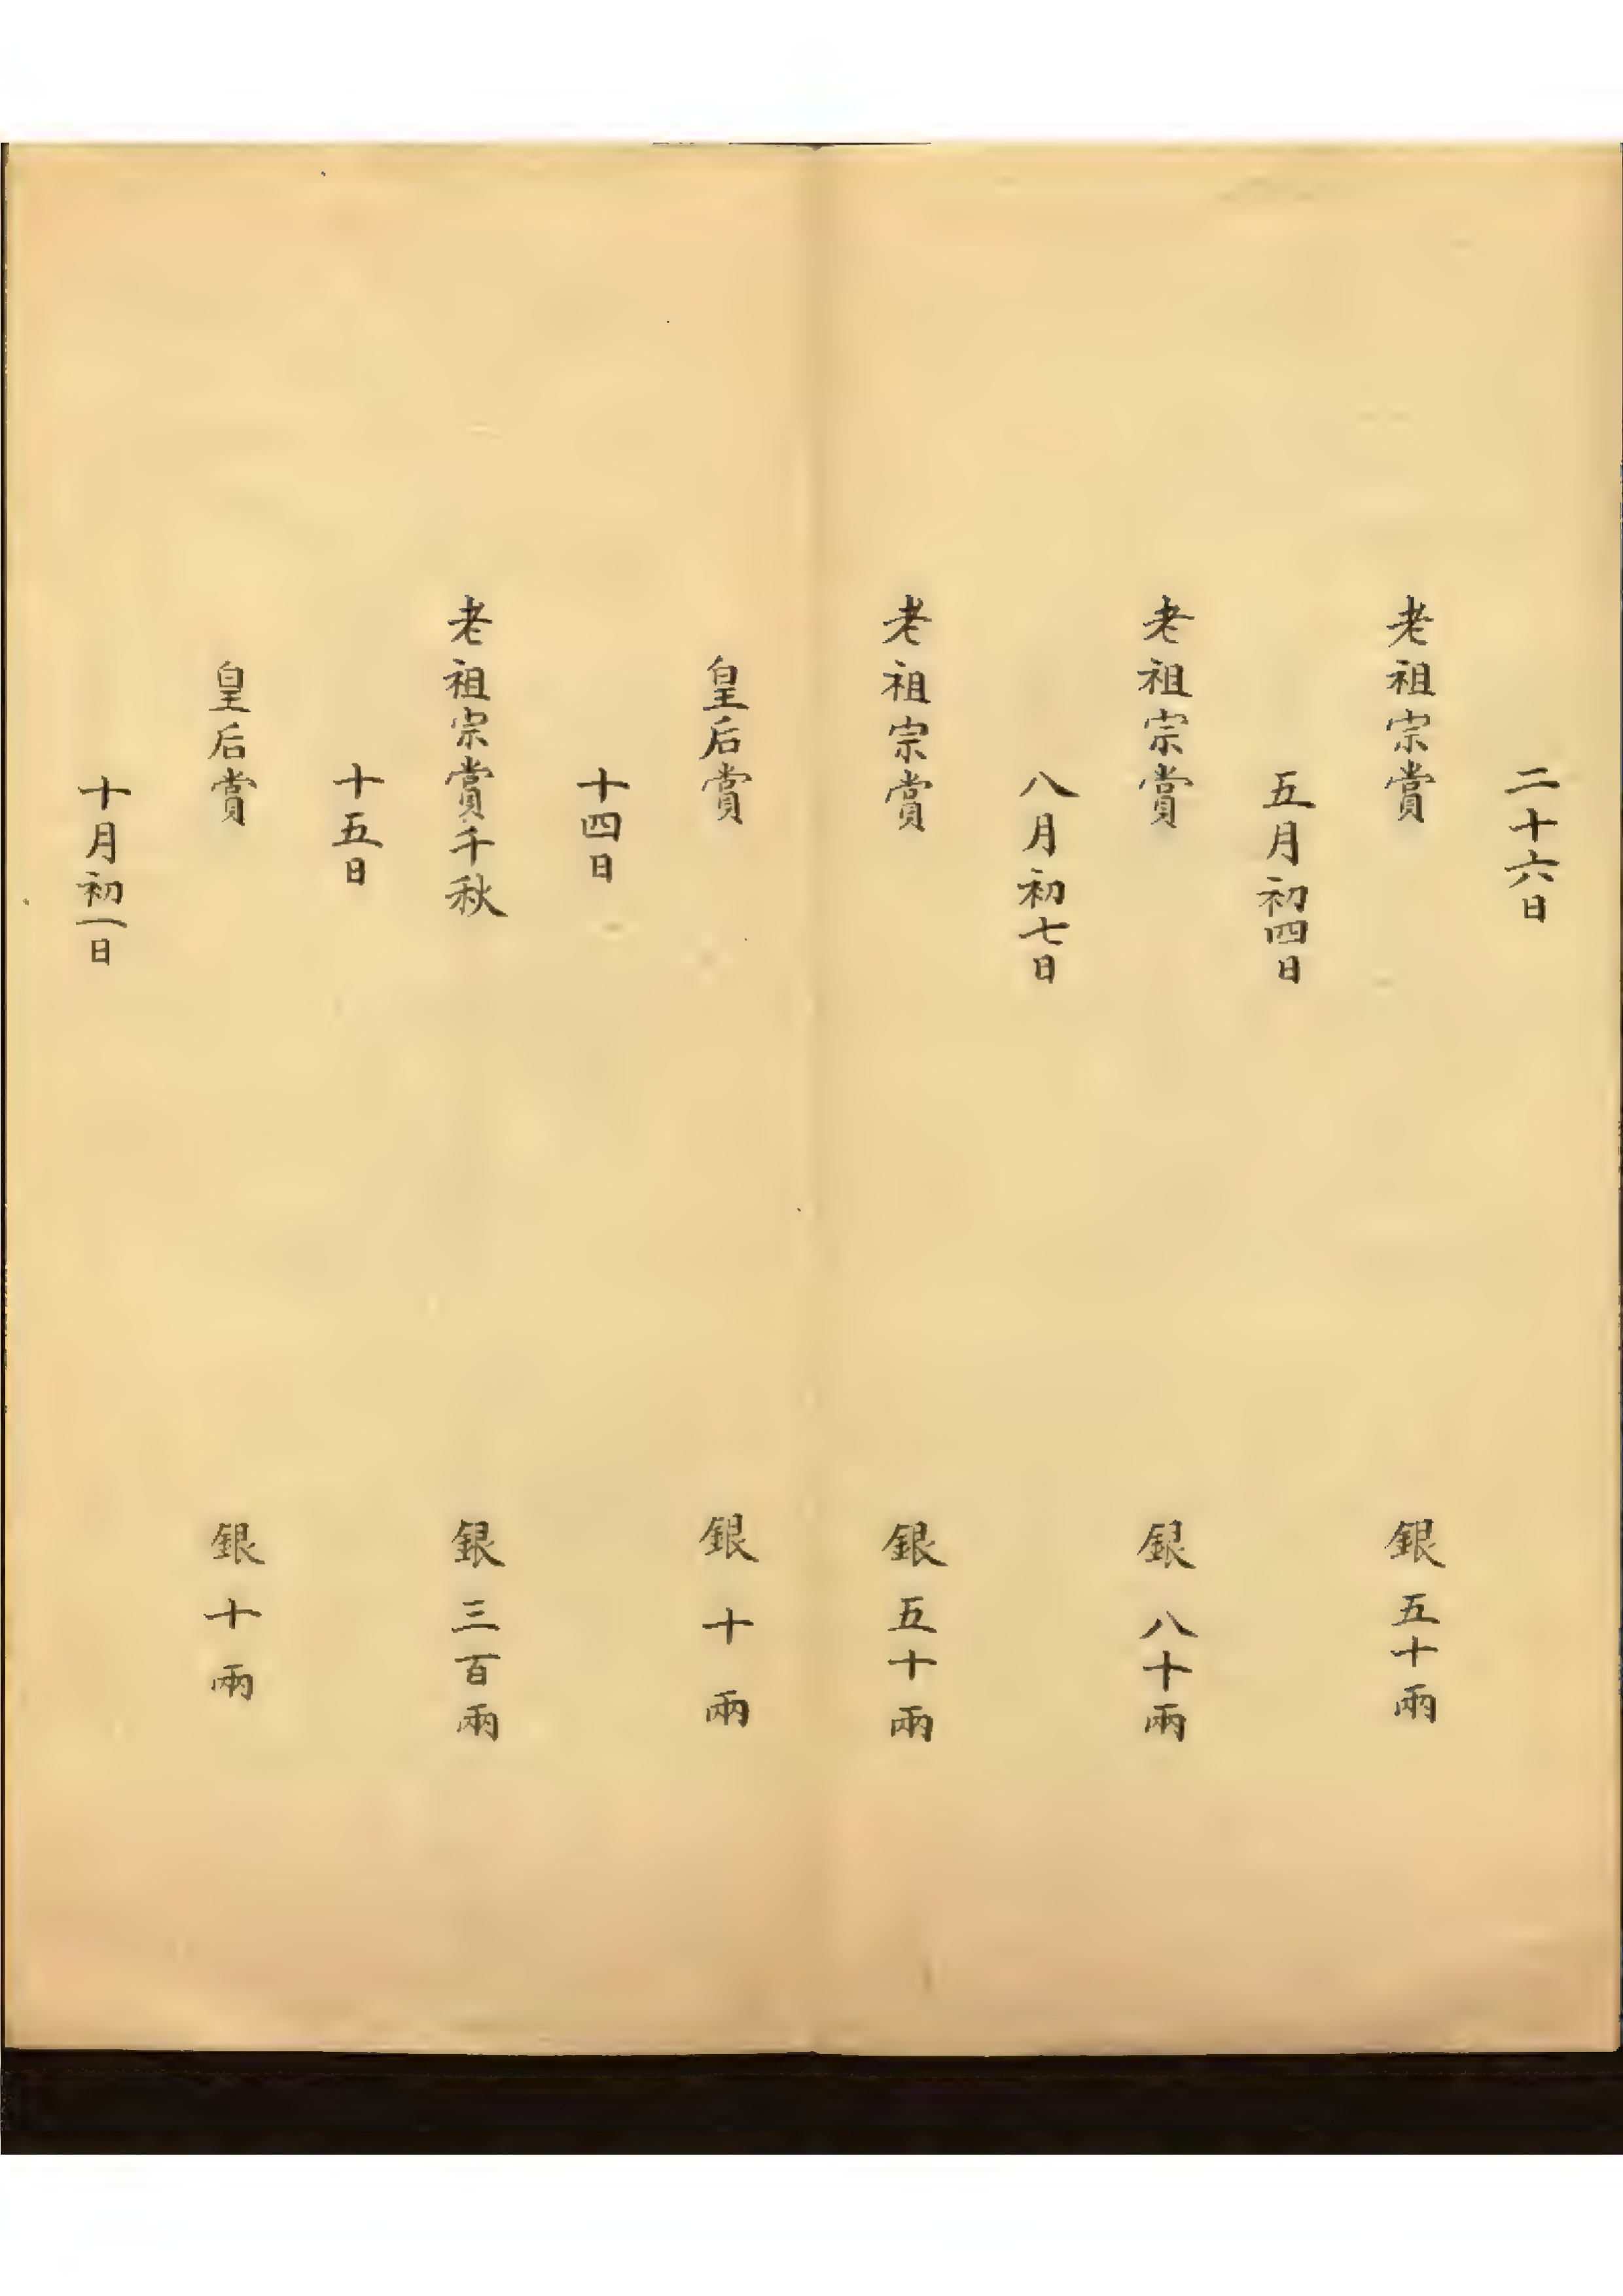 二十六日
老祖宗賞 銀五十兩
五月初四日
老祖宗賞 銀八十兩
八月初七日
老祖宗賞 銀五十兩
皇后賞 銀十兩
十四日
老祖宗賞千秋 銀三百兩
十五日
皇后賞 銀十兩
十月初一日